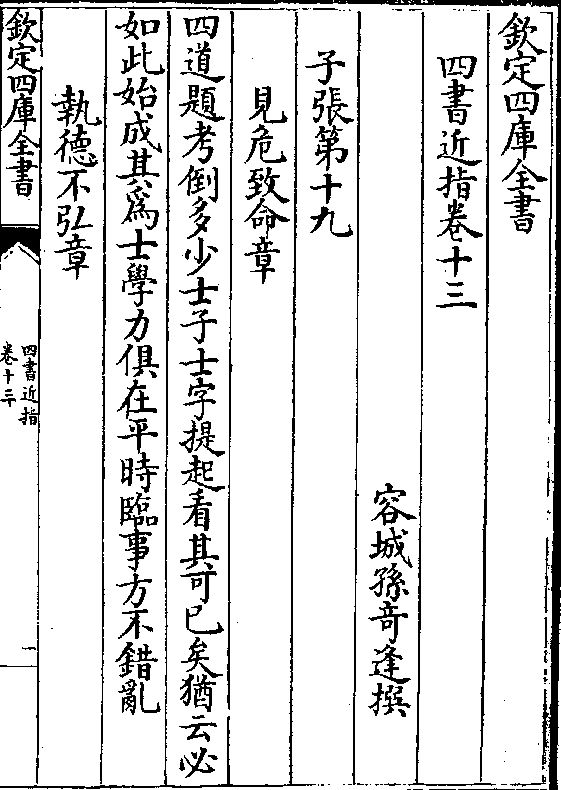 欽定四庫全書
四書近指卷十三
容城孫奇逢撰
子張第十九
見危致命章
四道題考倒多少士子士字提起看其可已矣猶云必
如此始成其為士學力俱在平時臨事方不錯亂
執德不弘章
欽定四庫全書
四書近指
卷十三
一